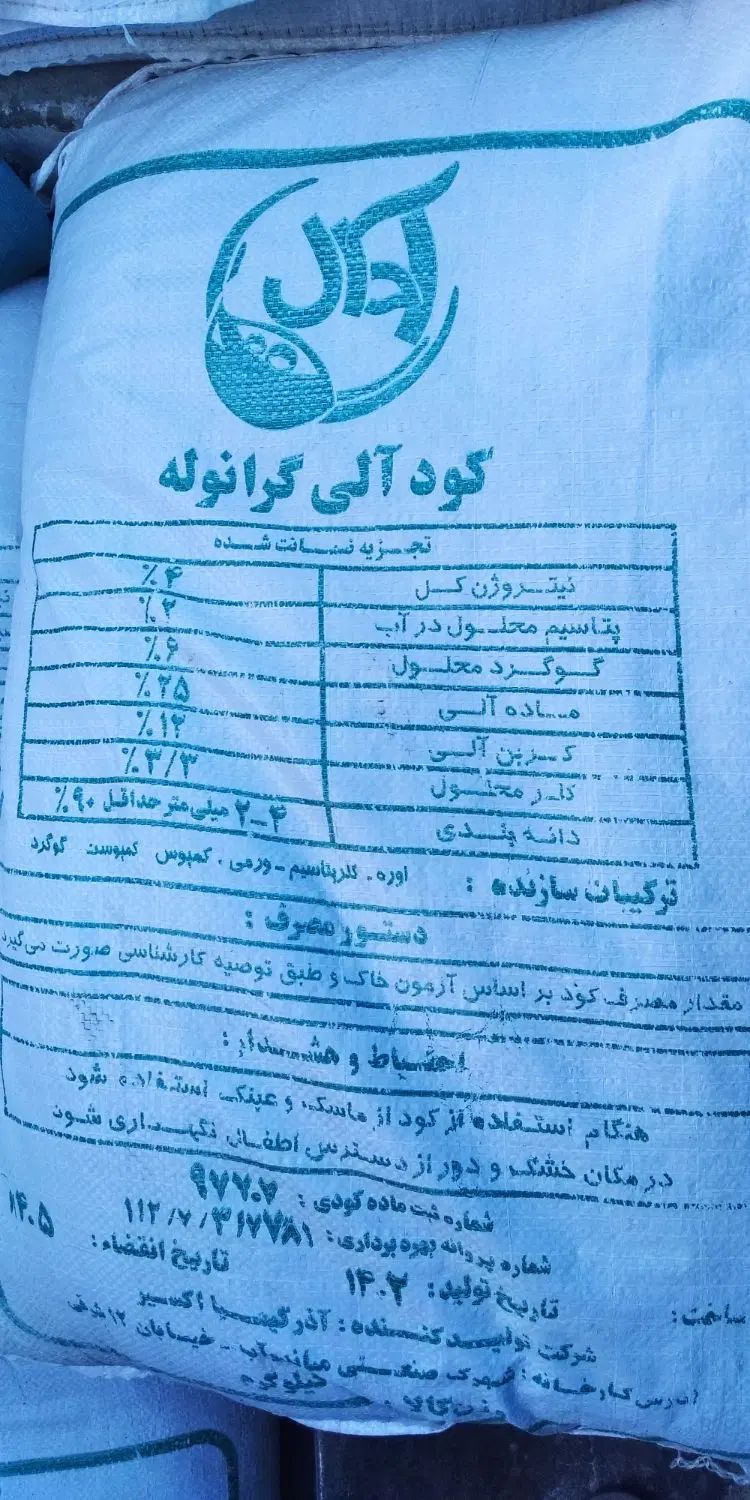 کود آلی گرانوله
تجزیه ضمانت شده
نیتروژن کل ۴٪
پتاسیم محلول در آب ۲٪
گوگرد محلول ۶٪
ماده آلی ۲۵٪
کربن آلی ۱۲٪
کلر محلول ۳/۳٪
دانه بندی ۲-۴ میلی متر حداقل ۹۰٪
ترکیبات سازنده : اوره . کلرپتاسیم - ورمی . کمپوس کمپوست گوگرد
دستور مصرف :
مقدار مصرف کود بر اساس آزمون خاک و طبق توصیه کارشناسی صورت می‌گیرد
احتیاط و هشدار :
هنگام استفاده از کود از ماسک و عینک استفاده شود
در مکان خشک و دور از دسترس اطفال نگهداری شود
شماره ثبت ماده کودی : ۹۷۷۰۷
شماره پروانه بهره برداری : ۱۱۲/۷/۳۱۷۷۸۱
تاریخ تولید : ۱۴۰۲ تاریخ انقضاء : ۱۴۰۵
ساخت :
شرکت تولید کننده : آذر کیمیا اکسیر
آدرس کارخانه : شهرک صنعتی میاندوآب - خیابان ۱۲ شرقی
کیلوگرم